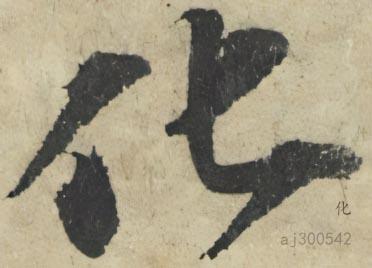 化
化
aj300542